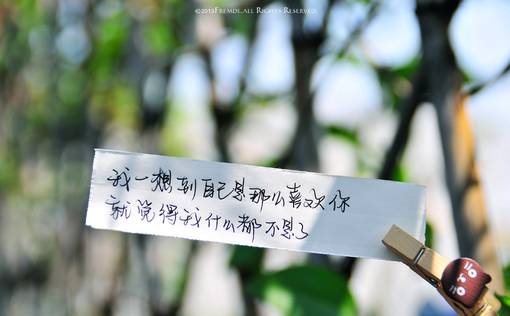 ©2013FREMDE.ALL RIGHTS RESERVED.
我一想到自己是那么喜欢你
就觉得我什么都不是了